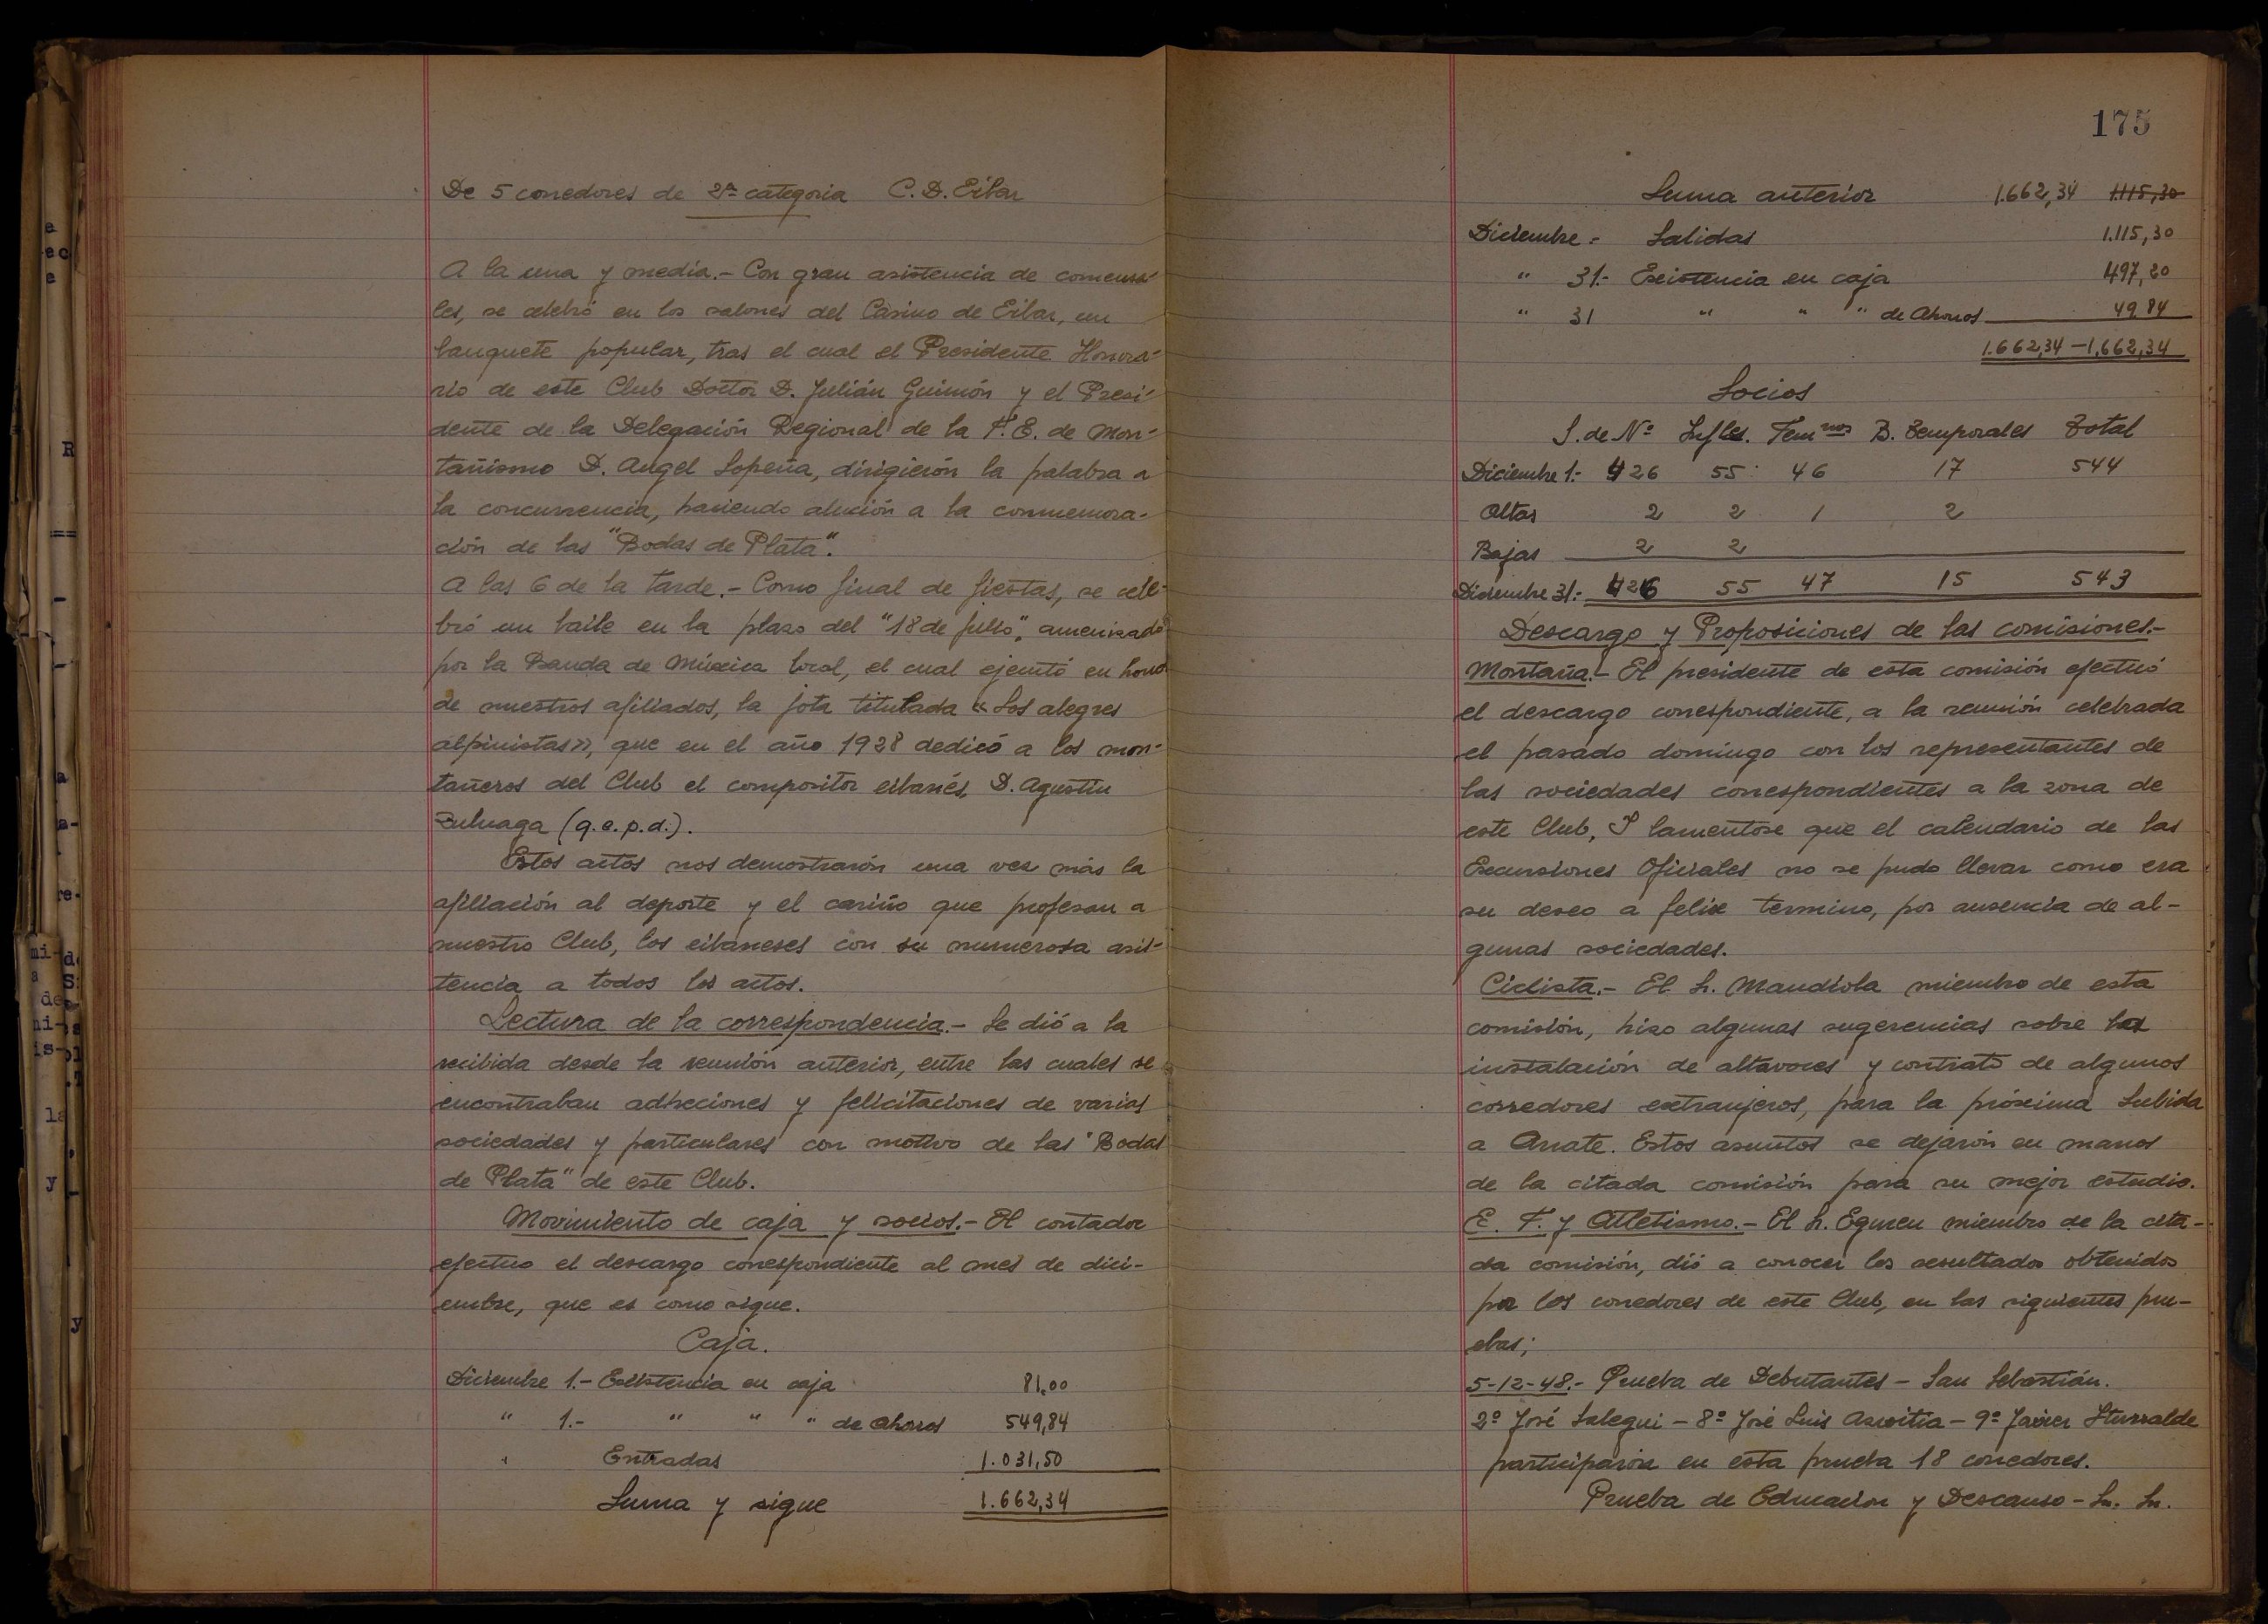 De 5 corredores de 2ª categoria C. D. Eibar
A la una y media.- Con gran asistencia de comensa-
les, se celebró en los salones del Casino de Eibar, un
banquete popular, tras el cual el Presidente Honora-
rio de este Club Doctor D. Julián Guimón y el Presi-
dente de la Delegación Regional de la F. E. de Mon-
tañismo D. Angel Sopeña, dirigierón la palabra a
la concurrencia, haciendo alución a la conmemora-
ción de las "Bodas de Plata".
A las 6 de la tarde.- Como final de fiestas, se cele-
bró un baile en la plaza del "18 de julio", amenizado
por la Banda de Música local, el cual ejecutó en honor
de nuestros afiliados, la jota titulada «Los alegres
alpinistas», que en el año 1928 dedicó a los mon-
tañeros del Club el compositor eibarrés, D. Agustin
Zuluaga (q.e.p.d.).
Estos actos nos demostrarón una vez más la
afiliación al deporte y el cariño que profesan a
nuestro Club, los eibarreses con su numerosa asis-
tencia a todos los actos.
Lectura de la correspondencia.- Se dió a la
recibida desde la reunión anterior, entre las cuales se
encontraban adheciones y felicitaciones de varias
sociedades y particulares con motivo de las "Bodas
de Plata" de este Club.
Movimiento de caja y socios.- El contador
efectuo el descargo correspondiente al mes de dici-
embre, que es como sigue.
Caja.
Diciembre 1.- Existencia en caja 81,00
" 1.- " " " de Ahorros 549,84
" Entradas 1.031,50
Suma y sigue 1.662,34
175
Suma anterior 1.662,34 1.115,30
Diciembre.- Salidas 1.115,30
" 31.- Existencia en caja 497,20
" 31 " " " de Ahorros 49,84
1.662,34 - 1,662,34
Socios
S. de Nº Infles. Fem nos B. Temporales Total
Diciembre 1.- 426 55 46 17 544
Altas 2 2 1 2
Bajas 2 2
Diciembre 31.- 426 55 47 15 543
Descargo y Proposiciones de las comisiones.-
Montaña.- El presidente de esta comisión efectuó
el descargo correspondiente, a la reunión celebrada
el pasado domingo con los representantes de
las sociedades correspondientes a la zona de
este Club, Y lamentose que el calendario de las
Excursiones Oficiales no se pudo llevar como era
su deseo a felix termino, por ausencia de al-
gunas sociedades.
Ciclista.- El Sr. Mandiola miembro de esta
comisión, hizo algunas sugerencias sobre la
instalación de altavoces y contrato de algunos
corredores extranjeros, para la próxima Subida
a Arrate. Estos asuntos se dejarón en manos
de la citada comisión para su mejor estudio.
E. F. y Atletismo.- El Sr. Eguren miembro de la cita-
da comisión, dió a conocer los resultados obtenidos
por los corredores de este Club, en las siguientes pru-
ebas;
5-12-48.- Prueba de Debutantes - San Sebastián.
2º José Salegui - 8º José Luis Azcoitia - 9º Javier Iturralde
participarón en esta prueba 18 corredores.
Prueba de Educacion y Descanso - Sn. Sn.